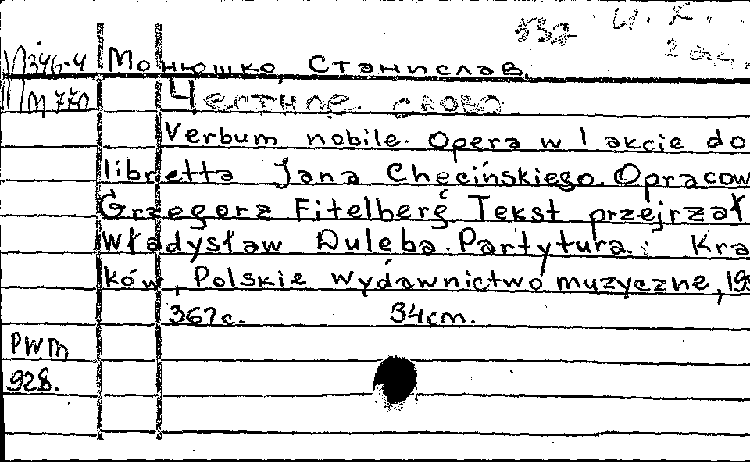 537
И346-4 Монюшко, Станислав.
М770 Честное слово
Verbum nobile. Opera w 1 akcie do
libretta Jana Chęcińskiego. Opracow
Grzegorz Fitelberg Tekst przejrzał
Władysław Duleba. Partytura. Kra
ków, Polskie wydawnictwo muzyczne, 19
367c. 34cm.
PWM
928.